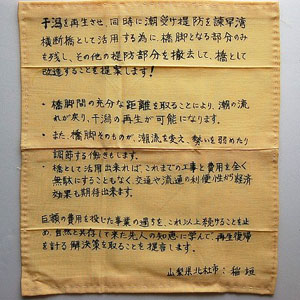 干潟を再生させ、同時に潮受け堤防を諫早湾
横断橋として活用する為に、橋脚となる部分のみ
を残し、その他の堤防部分を撤去して、橋として
改造することを提案します!
・橋脚間の充分な距離を取ることにより、潮の流
れが戻り、干潟の再生が可能になります。
・また、橋脚そのものが、潮流を変え、勢いを弱めたり
調節する働きもします。
・橋として活用出来れば、これまでの工事と費用を全く
無駄にすることもなく、交通や流通の利便性から経済
効果も期待出来ます。
巨額の費用を投じた事業の過ちを、これ以上続けることを止
め、自然と共存して来た先人の知恵に学んで、再生復帰
を計る解決策を取ることを提言します。
山梨県北杜市:稲垣